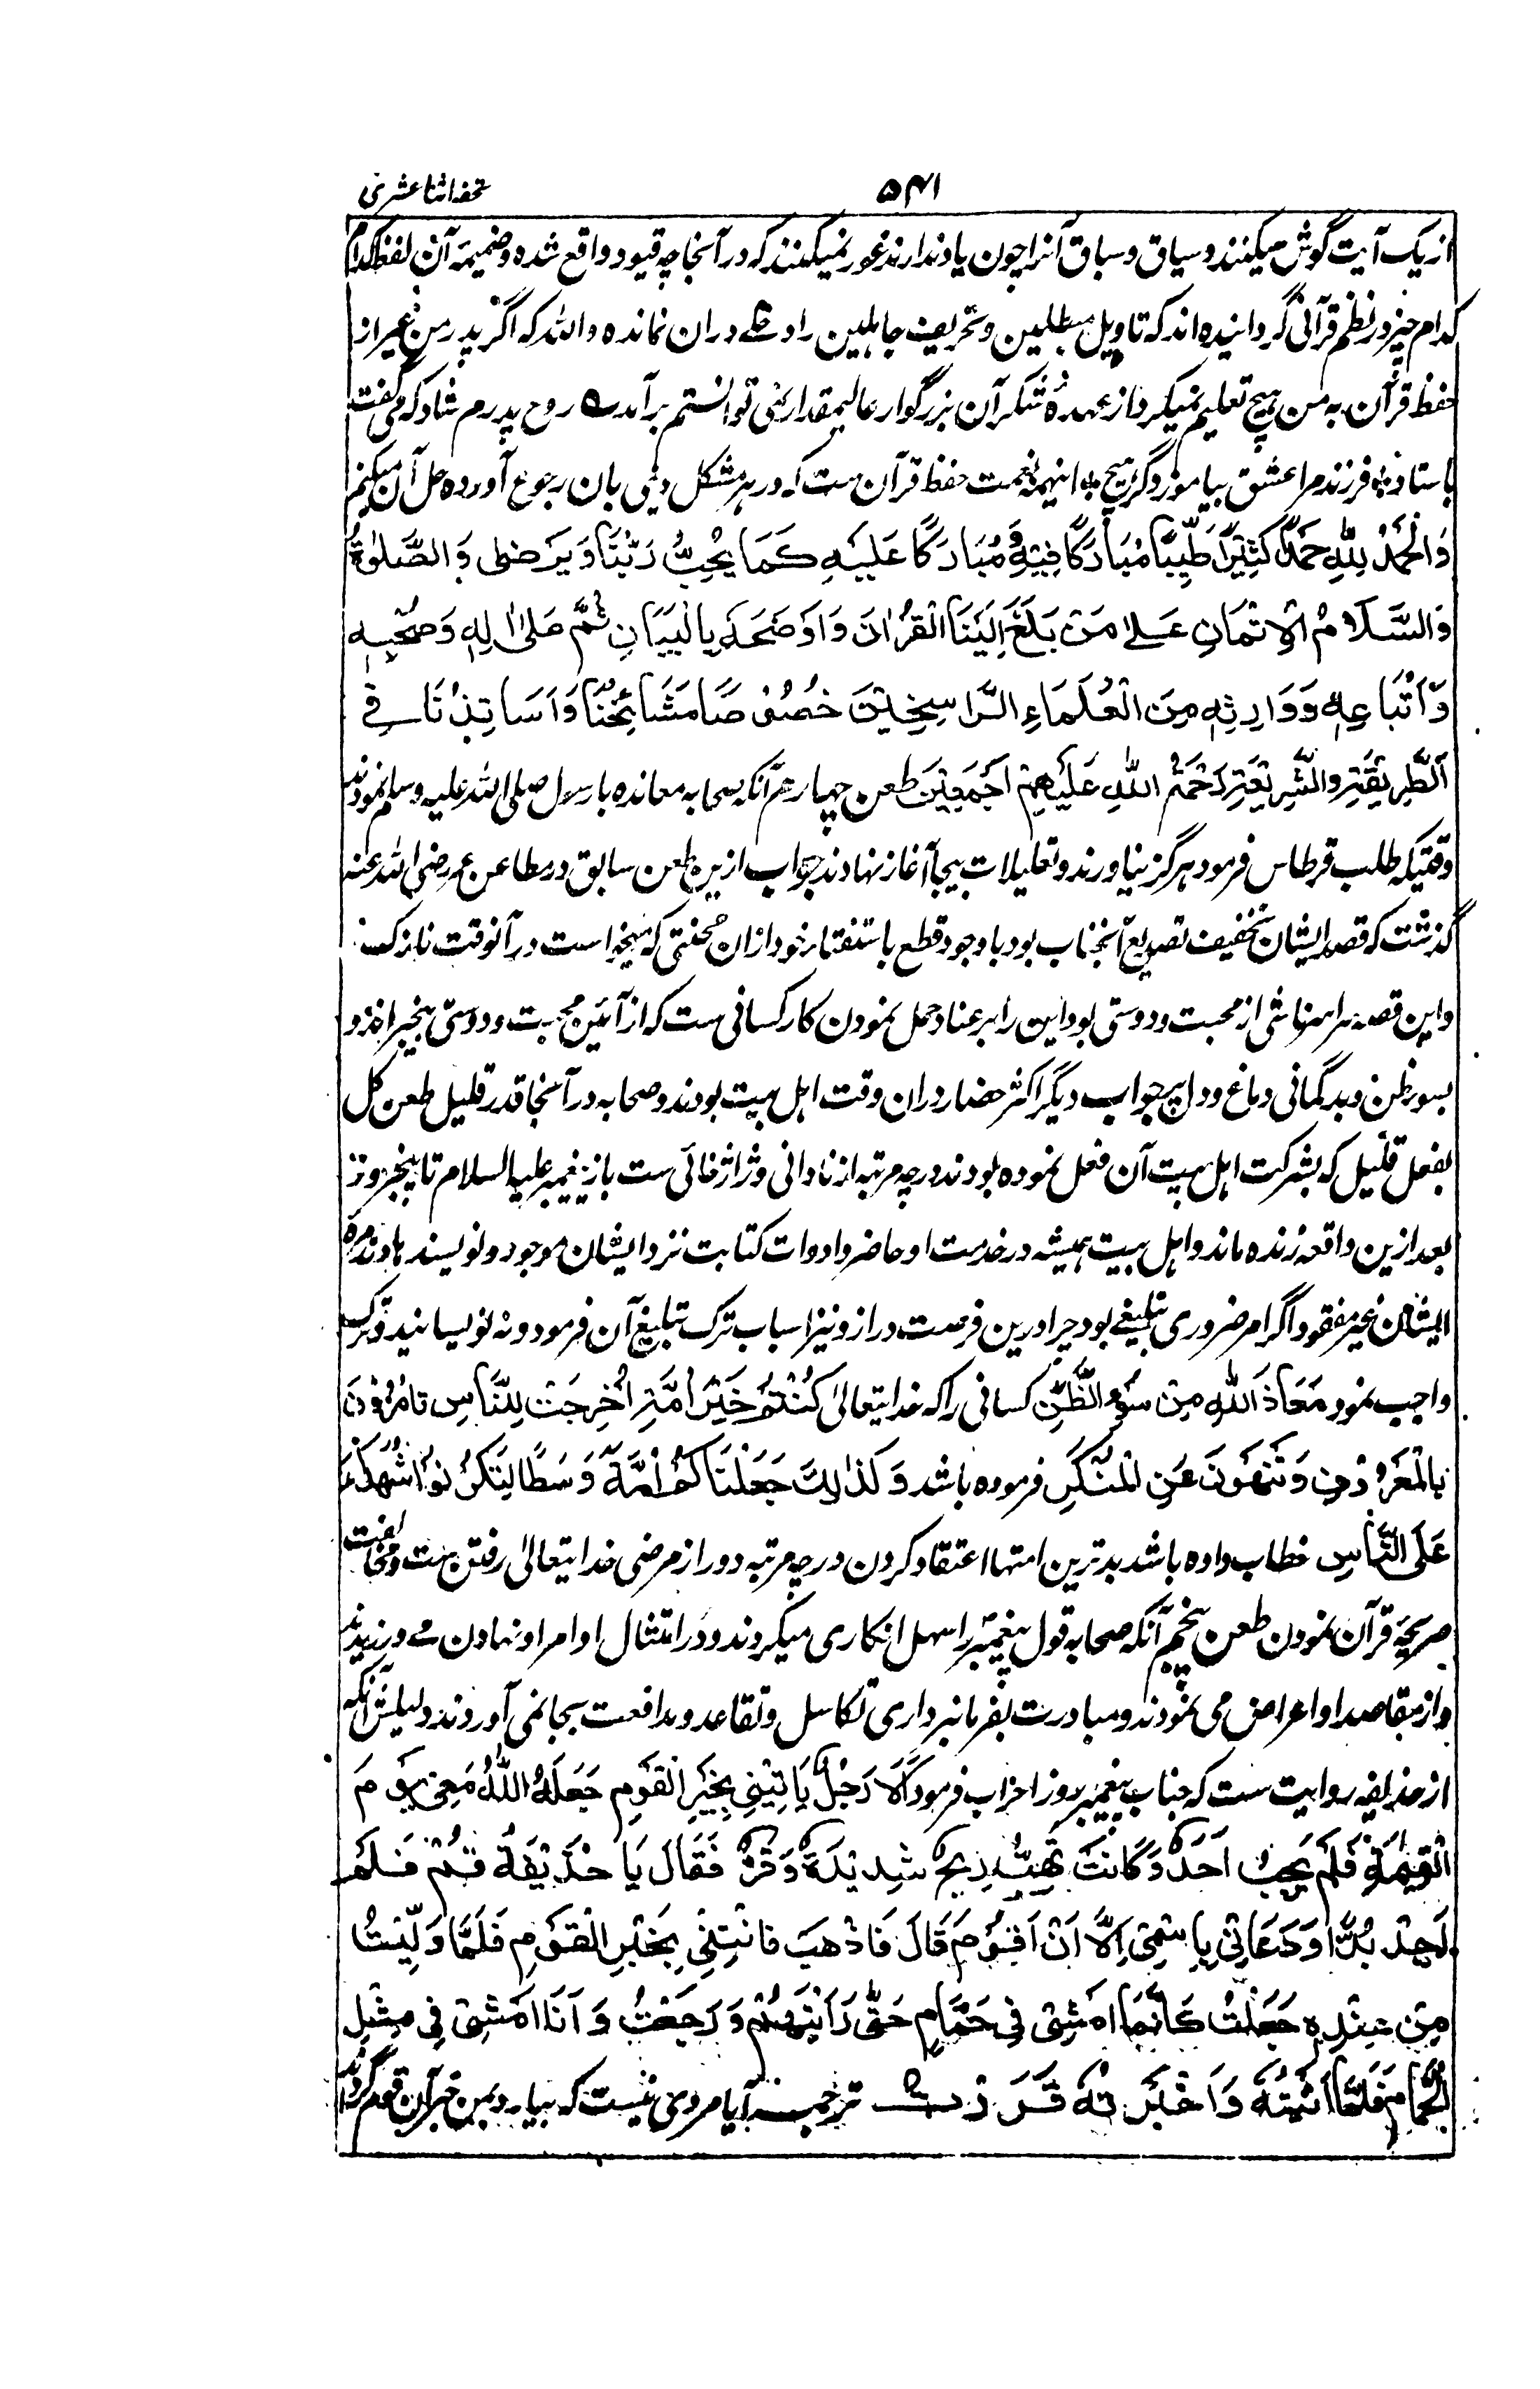 تحفه اثنا عشری
۵۴۱
از یک آیت گوش میکنند و سیاق و سباق آنرا چون یاد ندارند غور نمیکنند که در آنجا چه قیود واقع شده و ضمیمهٔ آن لفظ کدام
کدام چیز در نظم قرآنی گردانیده اند که تاویل مبطلین و تحریف جاهلین را دخلے دران نمانده والله که اگر پدر من غیر از
حفظ قرآن به من هیچ تعلیم نمیکرد از عهدهٔ شکر آن بزرگوار عالیمقدار نمی توانستم برآمد ه روح پدرم شاد که می گفت
باستاد ÷ فرزند مرا عشق بیاموز و گر هیچ ÷ اینهمه نعمت حفظ قرآن ست که در هر مشکل دینی بان رجوع آورده حل آن میکنم
وَالْحَمْدُ لِلّٰهِ حَمْدًا كَثِيْرًا طَيِّبًا مُبَارَكًا فِيْهِ وَمُبَارَكًا عَلَيْهِ كَمَا يُحِبُّ رَبُّنَا وَيَرْضٰى وَالصَّلٰوةُ
وَالسَّلَامُ الْاَتَمَّانِ عَلٰے مَنْ بَلَّغَ اِلَيْنَا الْقُرْاٰنَ وَاَوْضَحَهٗ بِالْبَيَانِ ثُمَّ عَلٰى اٰلِهٖ وَصَحْبِهٖ
وَاَتْبَاعِهٖ وَوَارِثِهٖ مِنَ الْعُلَمَاءِ الرَّاسِخِيْنَ خُصُوْصًا مَشَائِخِنَا وَاَسَاتِذِنَا فِے
الطَّرِيْقَةِ وَالشَّرِيْعَةِ رَحْمَةُ اللّٰهِ عَلَيْهِمْ اَجْمَعِيْنَ طعن چهارم آنکه صحابه معانده با رسول صلی الله علیه وسلم نمودند
وقتیکه طلب قرطاس فرمود هرگز نیاوردند و تعلیلات بیجا آغاز نهادند جواب ازین طعن سابق در مطاعن عمر رضی الله عنه
گذشت که قصد ایشان تخفیف تصدیع آنجناب بود با وجود قطع باستغناء خود ازان محنتی که میخواست در آنوقت نازک کشد
و این قصه سراسر ناشی از محبت و دوستی بود این را بر عناد حمل نمودن کار کسانی ست که از آئین محبت و دوستی بیخبر اند و
بسوء ظن و بدگمانی دماغ و دل پر جواب دیگر اکثر حضار دران وقت اهل بیت بودند و صحابه در آنجا قدر قلیل طعن کل
بفعل قلیل که بشرکت اهل بیت آن فعل نموده بودند درچه مرتبه از نادانی و ژاژخائی ست باز پیغمبر علیه السلام تا پنج روز
بعد ازین واقعه زنده ماند و اهل بیت همیشه در خدمت او حاضر و ادوات کتابت نزد ایشان موجود و نویسندها در زمره
ایشان غیر مفقود اگر امر ضروری تبلیغے بود چرا درین فرصت دراز و نیز اسباب ترک تبلیغ آن فرمود و نه نویسانید و ترک
واجب نمود مَعَاذَ اللّٰهِ مِنْ سُوْءِ الظَّنِّ کسانی را که خدایتعالیٰ كُنْتُمْ خَيْرَ اُمَّةٍ اُخْرِجَتْ لِلنَّاسِ تَامُرُوْنَ
بِالْمَعْرُوْفِ وَتَنْهَوْنَ عَنِ الْمُنْكَرِ فرموده باشد وَكَذٰلِكَ جَعَلْنَاكُمْ اُمَّةً وَسَطًا لِتَكُوْنُوْا شُهَدَاءَ
عَلَى النَّاسِ خطاب داده باشد بدترین امتها اعتقاد کردن درچه مرتبه دور از مرضی خدایتعالیٰ رفتن ست و مخالفت
صریحهٔ قرآن نمودن طعن پنجم آنکه صحابه قول پیغمبر را سهل انکاری میکردند و در امتثال اوامر او تهاون مے ورزیدند
و از مقاصد او اعراض می نمودند و مبادرت بفرمانبرداری تکاسل و تقاعد و مدافعت بجا نمی آوردند دلیلش آنکه
از حذیفه روایت ست که جناب پیغمبر روز احزاب فرمود اَلَا رَجُلٌ يَاْتِيْنِيْ بِخَبَرِ الْقَوْمِ جَعَلَهُ اللّٰهُ مَعِيْ يَوْمَ
الْقِيٰمَةِ فَلَمْ يُجِبْ اَحَدٌ وَكَانَتْ تَهُبُّ رِيْحٌ شَدِيْدَةٌ وَقُرٌّ فَقَالَ يَا حُذَيْفَةُ قُمْ فَلَمْ
اَجِدْ بُدًّا وَدَعَانِيْ بِاِسْمِيْ اِلَّا اَنْ اَقُوْمَ قَالَ فَاذْهَبْ فَائْتِنِيْ بِخَبَرِ الْقَوْمِ فَلَمَّا وَلَّيْتُ
مِنْ عِنْدِهٖ جَعَلْتُ كَاَنَّمَا اَمْشِيْ فِيْ حَمَّامٍ حَتّٰى رَاَيْتُهُمْ وَرَجَعْتُ وَاَنَا اَمْشِيْ فِيْ مِثْلِ
الْحَمَّامِ فَلَمَّا اَتَيْتُهٗ وَاَخْبَرْتُهٗ قَرَرْتُ ترجمہ آیا مردی نیست که بیارد بمن خبر آن قوم گرداند